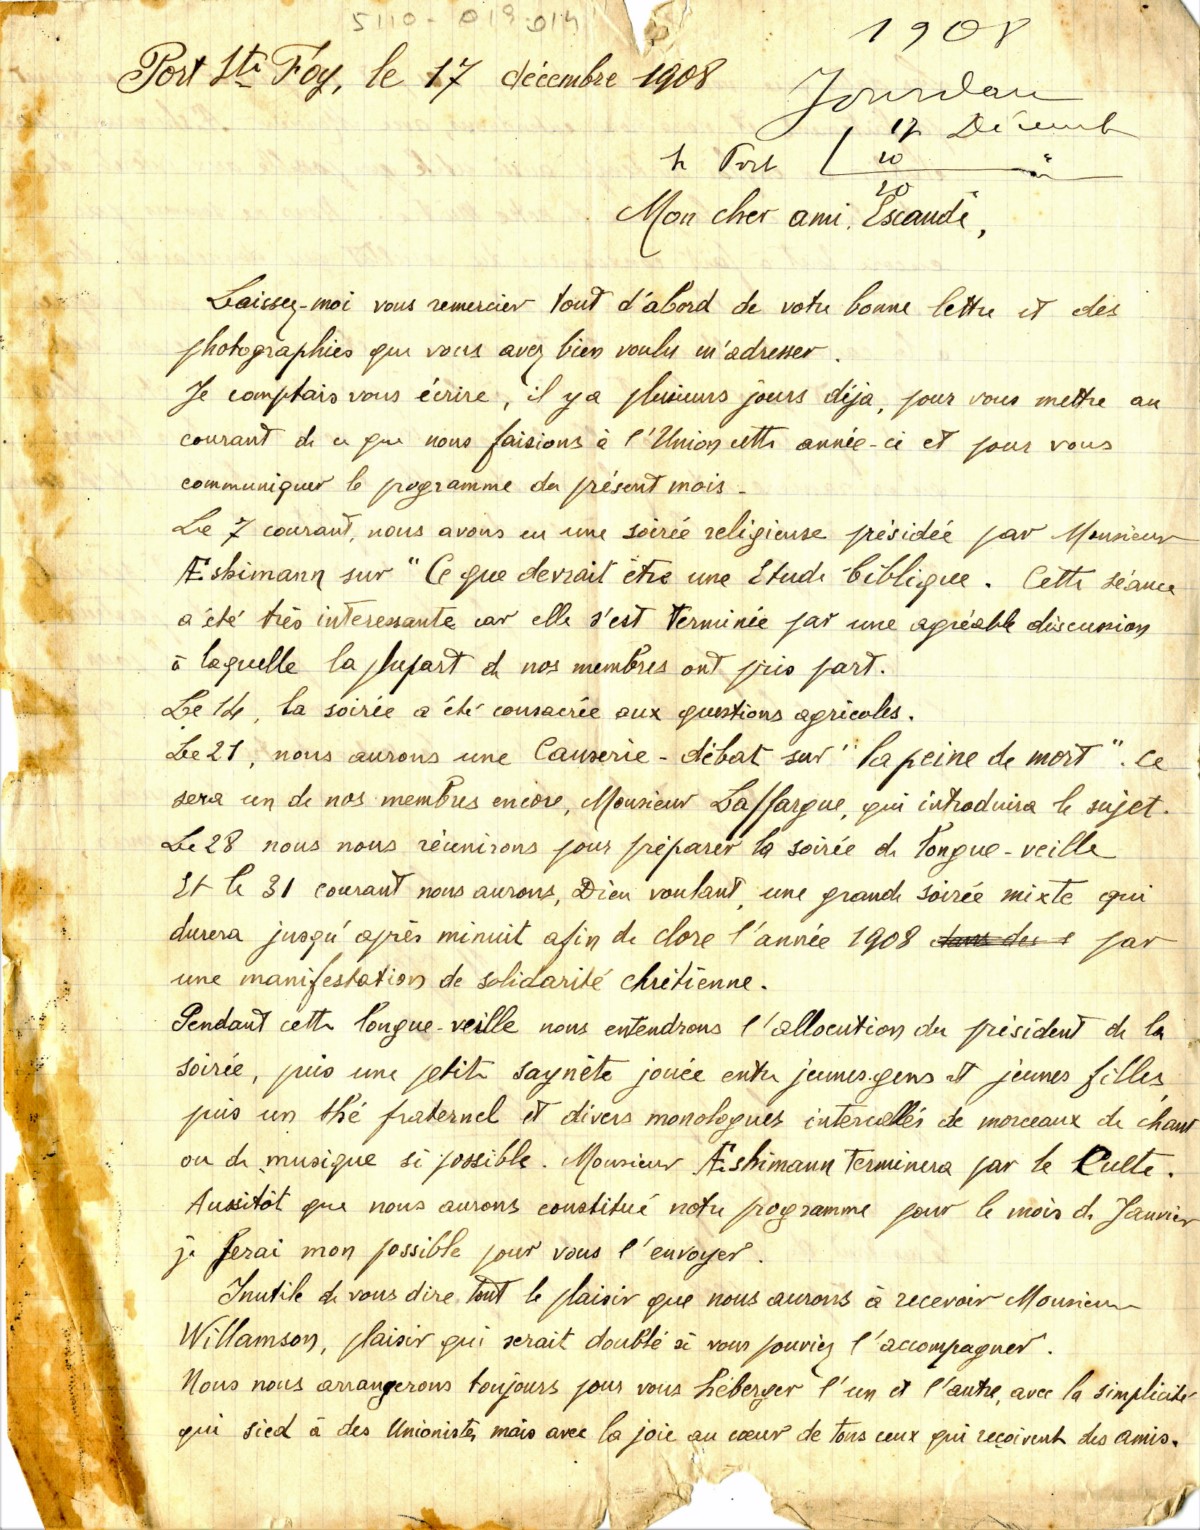 5110-019.014
1908
Port Ste Foy, le 17 décembre 1908
Jourdan
17 Décemb
20 "
20
Mon cher ami Escande,
Laissez-moi vous remercier tout d'abord de votre bonne lettre et des
photographies que vous avez bien voulu m'adresser.
Je comptais vous écrire, il y a plusieurs jours déja, pour vous mettre au
courant de ce que nous faisions à l'Union cette année-ci et pour vous
communiquer le programme du présent mois -
Le 7 courant, nous avons eu une soirée religieuse présidée par Monsieur
Æshimann sur "Ce que devrait être une Etude biblique. Cette séance
a été très interessante car elle s'est terminée par une agréable discussion
à laquelle la plupart de nos membres ont pris part.
Le 14, la soirée a été consacrée aux questions agricoles.
Le 21, nous aurons une Causerie-débat sur "la peine de mort". Ce
sera un de nos membres encore, Monsieur Laffargue, qui introduira le sujet.
Le 28 nous nous réunirons pour préparer la soirée de longue-veille
Et le 31 courant nous aurons, Dieu voulant, une grande soirée mixte qui
durera jusqu'après minuit afin de clore l'année 1908 dans des par
une manifestation de solidarité chrétienne.
Pendant cette longue-veille nous entendrons l'allocution du président de la
soirée, puis une petite saynète jouée entre jeunes-gens et jeunes filles,
puis un thé fraternel et divers monologues intercallés de morceaux de chant
ou de musique si possible. Monsieur Æshimann terminera par le Culte.
Aussitôt que nous aurons constitué notre programme pour le mois de Janvier
je ferai mon possible pour vous l'envoyer.
Inutile de vous dire tout le plaisir que nous aurons à recevoir Monsieur
Willamson, plaisir qui serait doublé si vous pouviez l'accompagner.
Nous nous arrangerons toujours pour vous héberger l'un et l'autre, avec la simplicité
qui sied à des Unionistes mais avec la joie au cœur de tous ceux qui reçoivent des amis.